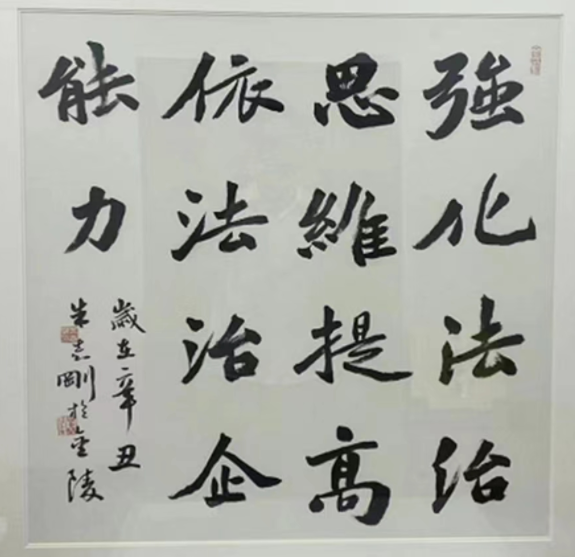 強化法治
思維提高
依法治企
能力
歲在辛丑
朱志剛於金陵